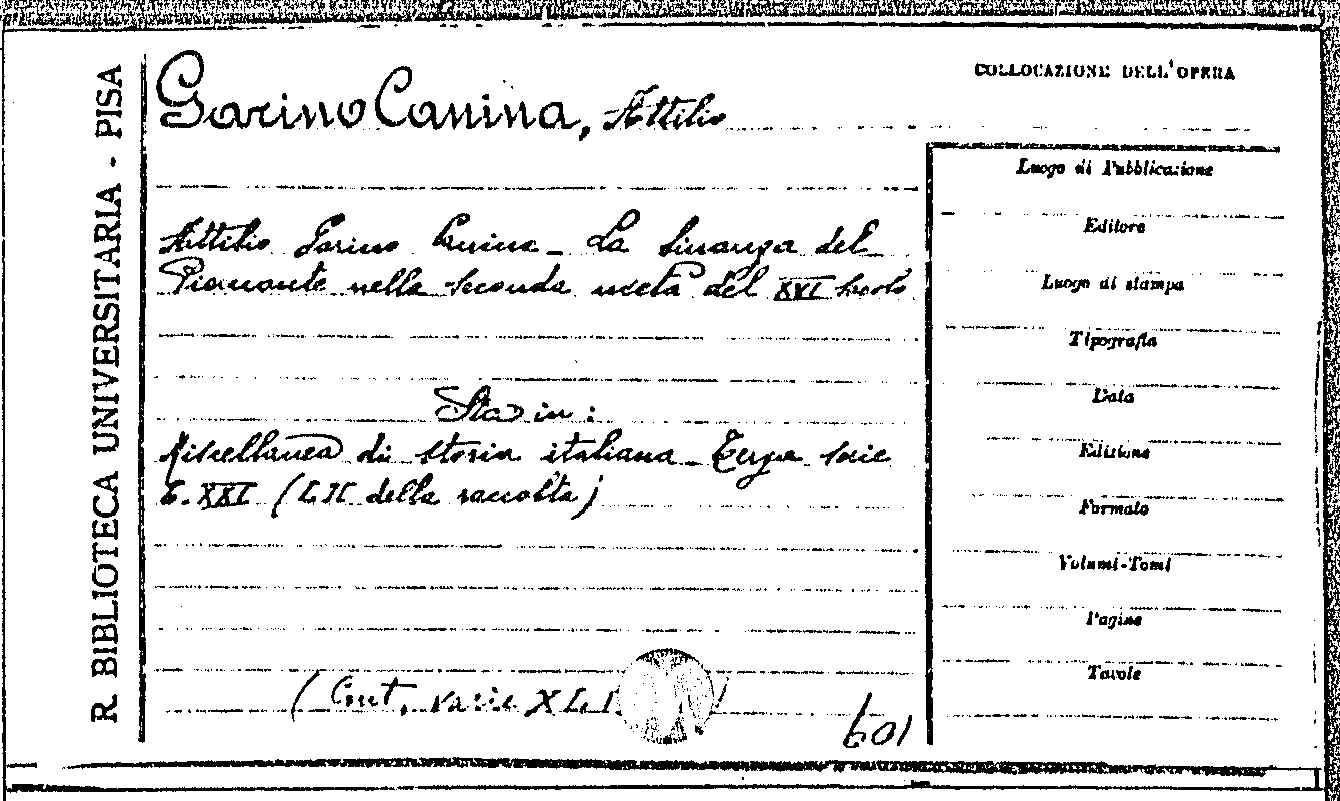 R. BIBLIOTECA UNIVERSITARIA - PISA
Garino Canina, Attilio
Attilio Garino Canina - La finanza del
Piemonte nella seconda metà del XVI secolo
Sta in:
Miscellanea di storia italiana Terza serie
T. XXI (LII della raccolta)
(Cont. varie XLI
601
COLLOCAZIONE DELL'OPERA
Luogo di Pubblicazione
Editore
Luogo di stampa
Tipografia
Data
Edizione
Formato
Volumi-Tomi
Pagine
Tavole